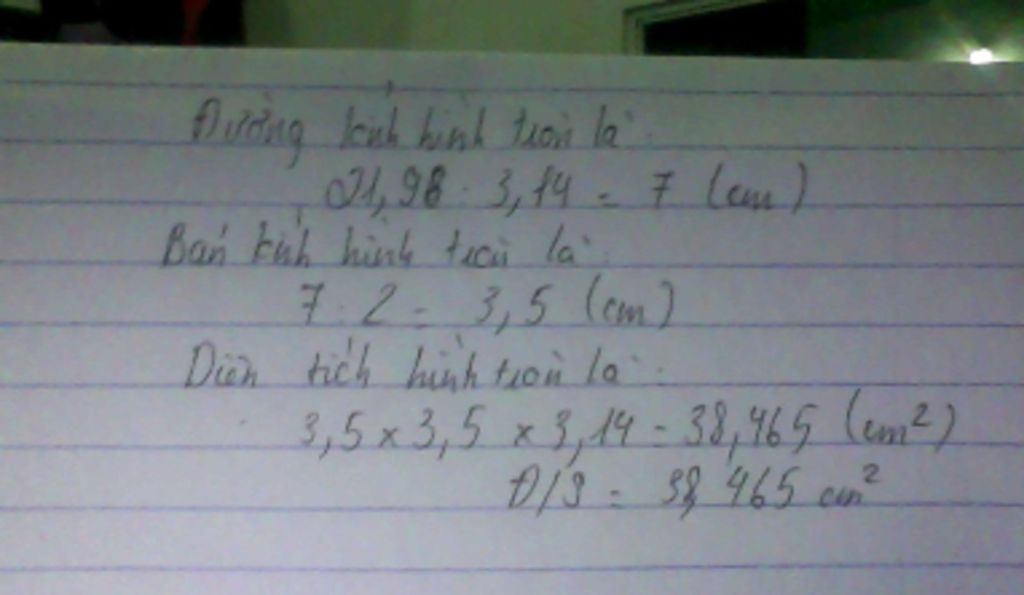 Đường kính hình tròn là:
21,98 : 3,14 = 7 (cm)
Bán kính hình tròn là:
7 : 2 = 3,5 (cm)
Diện tích hình tròn là:
3,5 x 3,5 x 3,14 = 38,465 (cm²)
Đ/S = 38,465 cm²